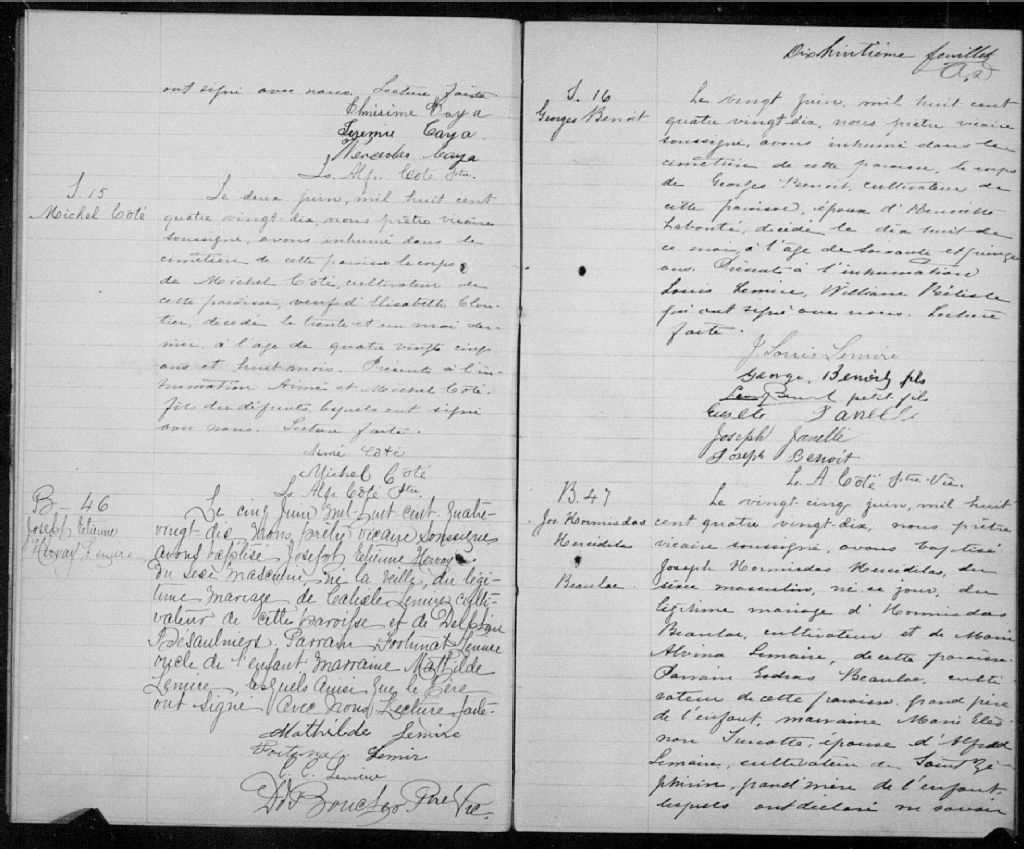 ont signé avec nous. Lecture faite
Elmisime Caya
Jeremie Caya
Mercedes Caya
Ls. Alp. Coté Ptre.
S. 15
Michel Coté
Le deux juin, mil huit cent
quatre vingt-dix, nous prêtre vicaire
soussigné, avons inhumé dans le
cimetière de cette paroisse le corps
de Michel Coté, cultivateur de
cette paroisse, veuf d'Elisabeth Clou-
tier, décédé le trente et un mai der-
nier, à l'age de quatre vingt cinq
ans et huit mois. Présents à l'in-
humation Aimé et Michel Coté
fils du défunt, lesquels ont signé
avec nous. Lecture faite.
Aimé Coté
Michel Coté
Ls. Alp. Coté Ptre.
B- 46
Joseph Etienne
Hervay Lemire
Le cinq Juin Mil huit cent quatre-
vingt dix Nous prêtre vicaire soussigné
avons baptisé Joseph Etienne Hervay
du sexe masculin, né la veille, du légi-
time mariage de Calixte Lemire culti-
vateur de cette paroisse et de Delphine
Desaulniers. Parrain Fortunat Lemire
oncle de l'enfant Marraine Mathilde
Lemire, lesquels ainsi que le Père
ont signé avec Nous Lecture faite.
Mathilde Lemire
Fortunat Lemir
C. Lemire
Ptre Vic.
Dixhuitième feuillet
S. 16
Georges Benoit
Le vingt juin, mil huit cent
quatre vingt dix, nous prêtre vicaire
soussigné, avons inhumé dans le
cimetière de cette paroisse, le corps
de Georges Benoit, cultivateur de
cette paroisse, époux d'Henriette
Labonté, décédé le dix huit de
ce mois, à l'âge de soixante et quinze
ans. Présents à l'inhumation
Louis Lemire, William Béliste
qui ont signé avec nous. Lecture
faite.
J. Louis Lemire
George, Benoit fils
petit fils
Janelle
Joseph Janelle
Joseph Benoit
Ls. A. Coté Ptre. Vic.
B. 47
Jos Hormisdas
Hereditas
Beaulac
Le vingt-cinq juin, mil huit
cent quatre vingt dix, nous prêtre
vicaire soussigné, avons baptisé
Joseph Hormisdas Hereditas, du
sexe masculin, né ce jour, du
légitime mariage d'Hormisdas
Beaulac, cultivateur et de Marie
Alvina Lemaire, de cette paroisse.
Parrain Esdras Beaulac, culti
vateur de cette paroisse, grand père
de l'enfant, marraine Marie Eleo-
nore Turcotte, épouse d'Alfred
Lemaire, cultivateur de Saint Zé-
phirin, grand'mère de l'enfant,
lesquels ont déclaré ne savoir